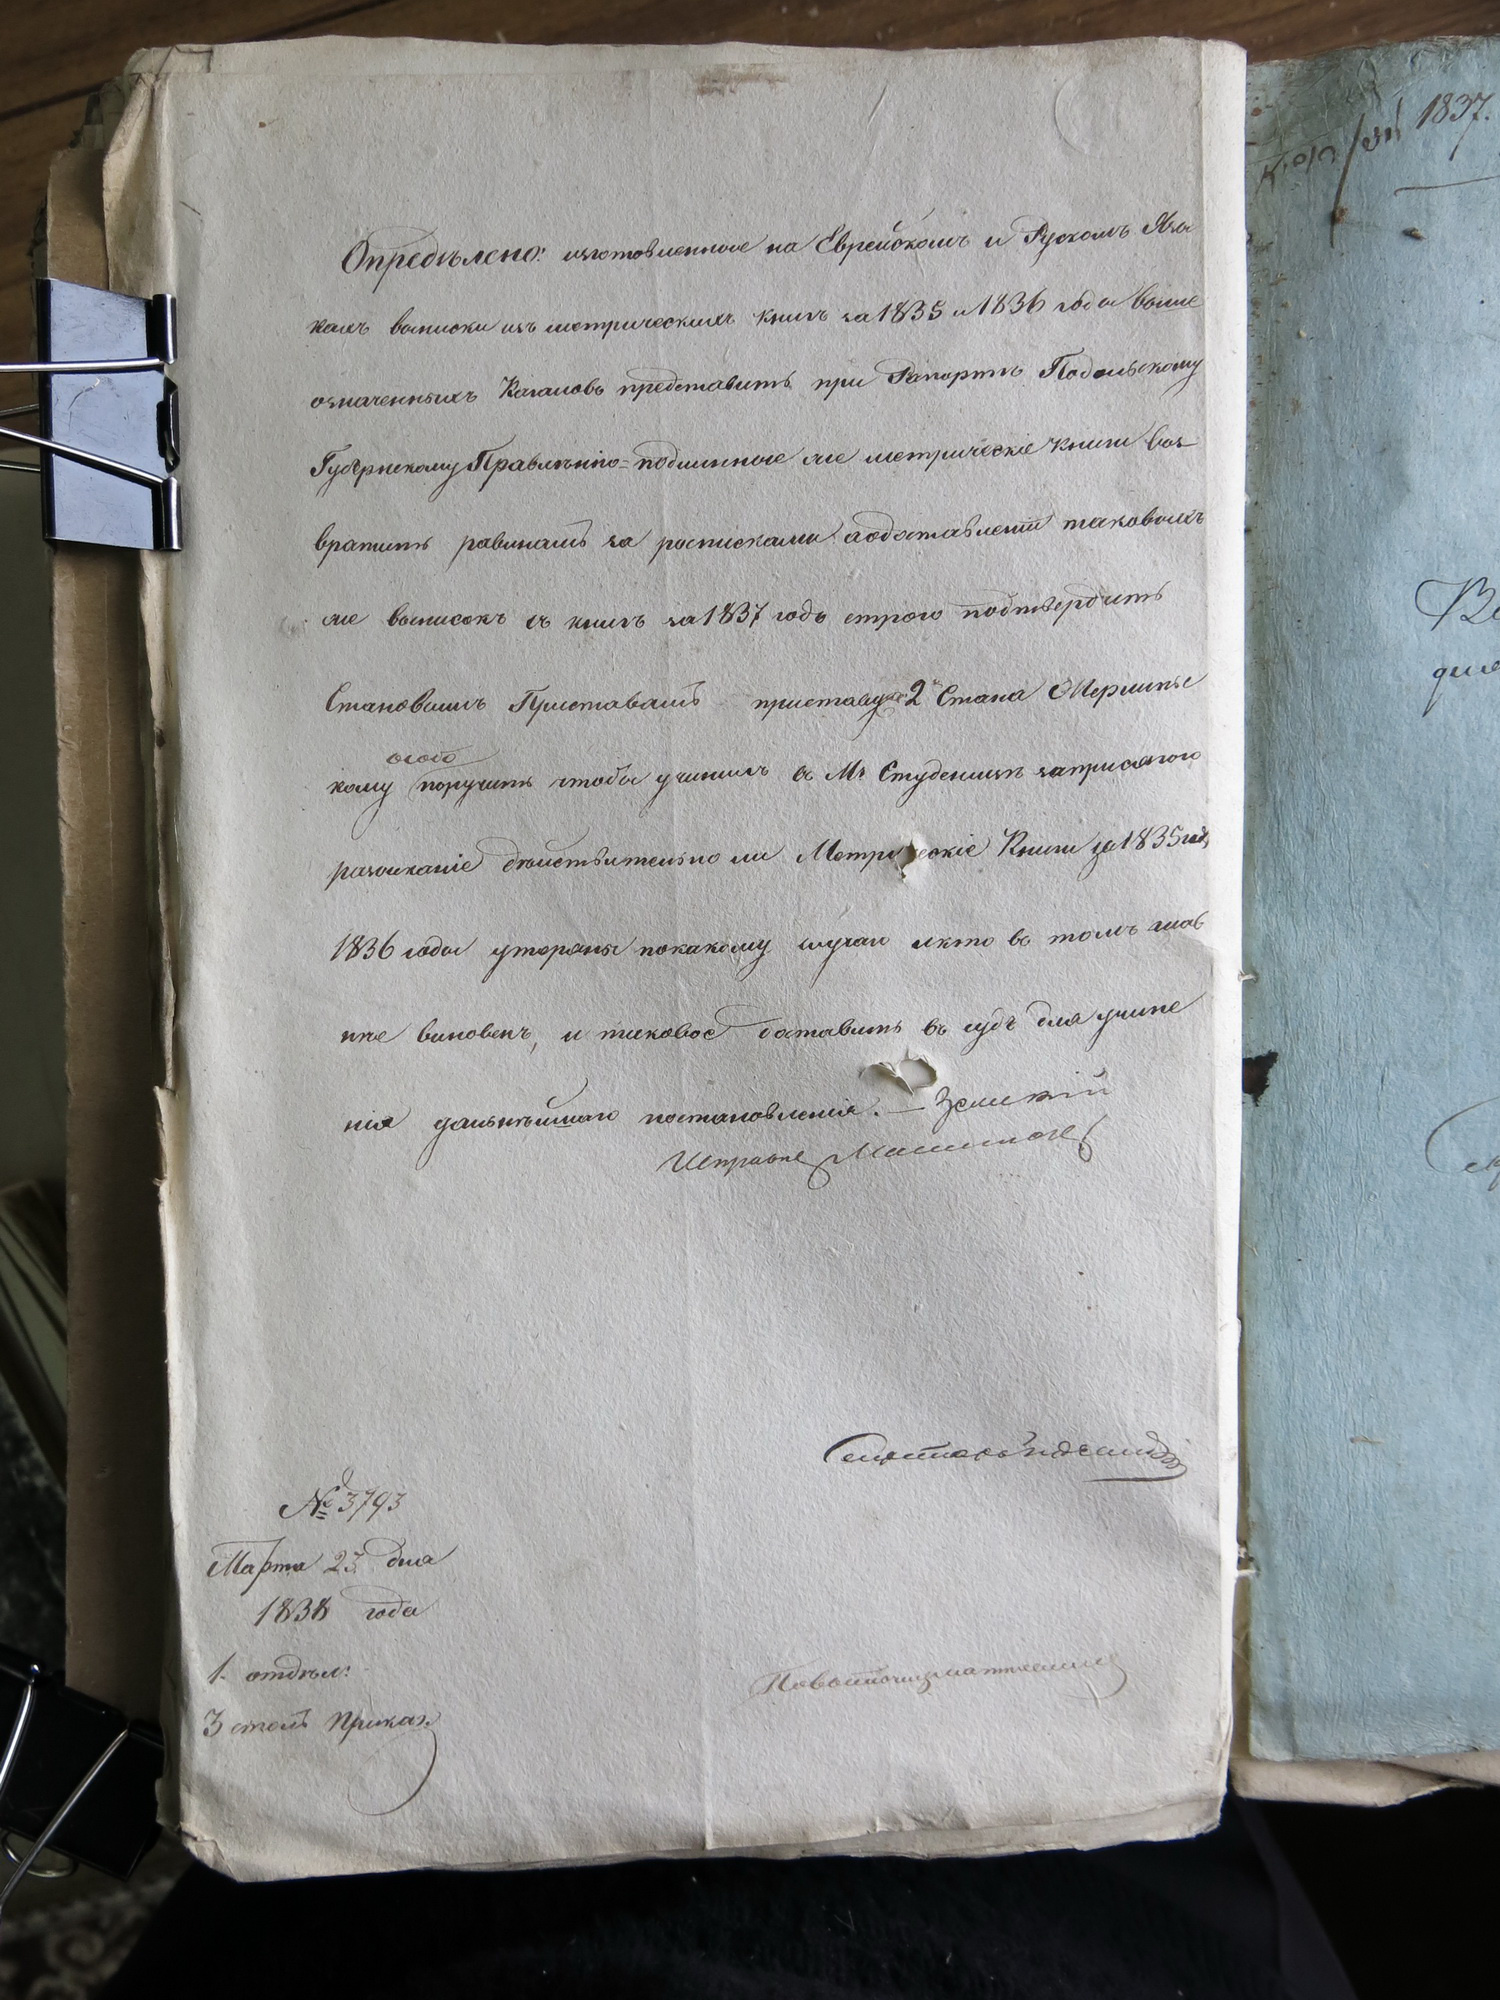 Опредѣлено: изготовленные на Еврейскомъ и Рускомъ Язы
кахъ выписки изъ метрическихъ книгъ за 1835 и 1836 годы выше
означенныхъ Кагаловъ представить при Рапортѣ Подольскому
Губернскому Правленію = подлинные же метрическіе книги воз
вратить равинамъ за росписками а о доставленіи таковыхъ
же выписокъ съ книгъ за 1837 годъ строго подтвердить
Становымъ Приставамъ приставу 2 Стана
особо
кому поручить чтобы учинилъ в М. Студеницѣ заприсягого
розысканіе действительно ли Метрическіе Книги за 1835 и
1836 годы утеряны по какому случаю и кто въ томъ имен
нне виновенъ, и таковое доставить въ судъ для учине
нія дальнѣйшаго постановленія. — Земскій
Исправн
Секретарь
№ 3793
Марта 23 дня
1838 года
1. отдѣл:
3 столъ Приказ.
1837.